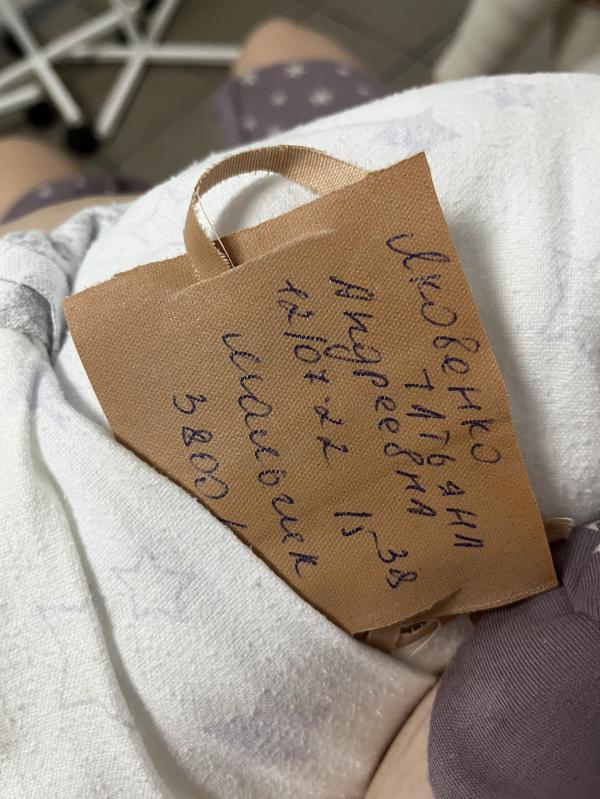 Яковенко
Татьяна
Андреевна
12/07-22 15-38
мальчик
3800/